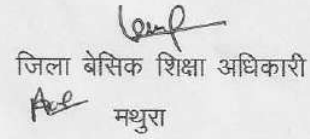 जिला बेसिक शिक्षा अधिकारी
मथुरा